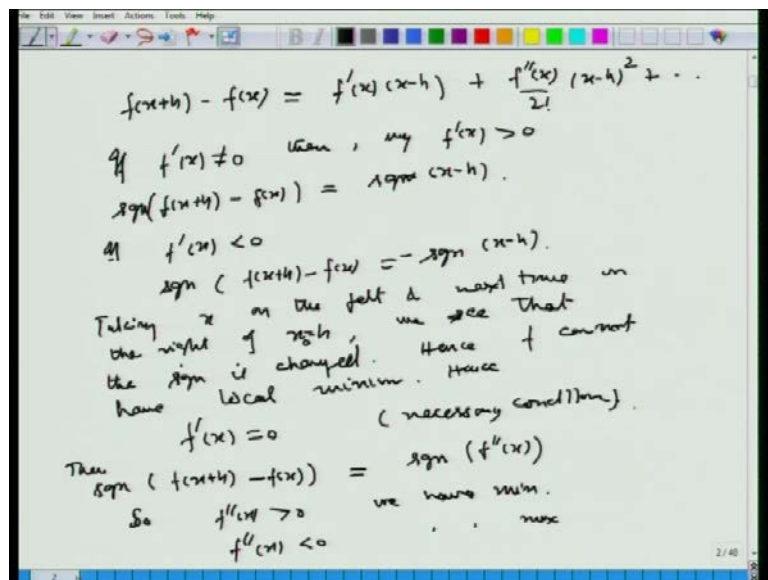 File Edit View Insert Actions Tools Help
f(x+h) - f(x) = f'(x) (x-h) + f''(x)/2! (x-h)^2 + ..
If f'(x) ≠ 0 then, say f'(x) > 0
sgn(f(x+h) - f(x)) = sgn (x-h).
If f'(x) < 0
sgn ( f(x+h) - f(x) = - sgn (x-h).
Taking x on the left & next time on
the right of we see that
the sign is changed. Hence f cannot
have local minim. Hence
f'(x) = 0 (necessary condition).
Then
sgn ( f(x+h) - f(x)) = sgn (f''(x))
So f''(x) > 0 we have min.
f''(x) < 0 , , max
2/40
2